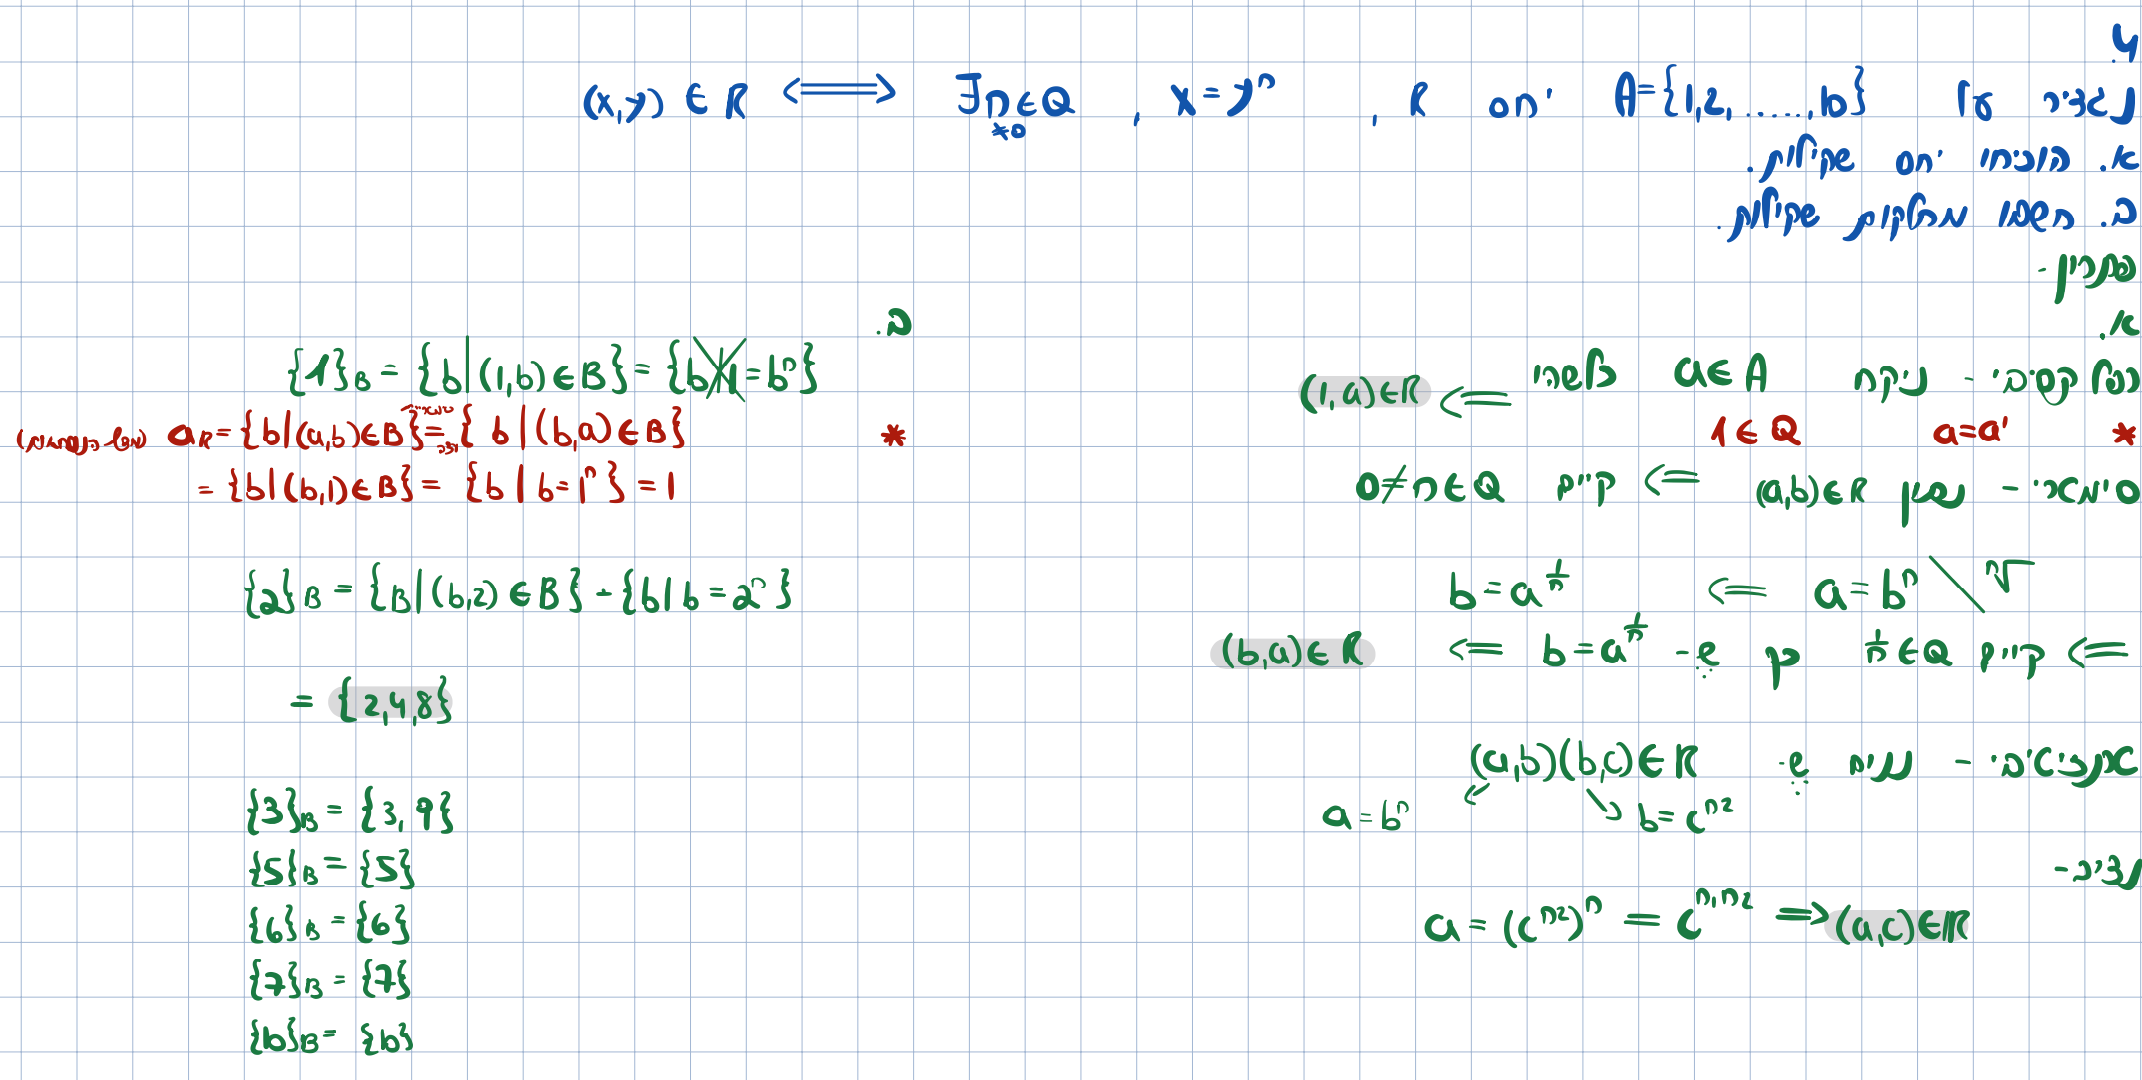 4.
נגדיר על A={1,2,.....,10} יחס R , x=y^n , ∃n∈Q (x,y)∈R ⟺
≠0
א. הוכיחו יחס שקילות.
ב. חשבו מחלקות שקילות.
פתרון -
א.
רפלקסיבי - ניקח a∈A כלשהו ⟸ (1,a)∈R
* a=a' 1∈Q
סימטרי - נטען (a,b)∈R ⟸ קיים 0≠n∈Q
a=b^n \ n√ ⟸ b=a^(1/n)
⟸ קיים 1/n∈Q כך ש- b=a^(1/n) ⟸ (b,a)∈R
טרנזיטיבי - נניח ש- (a,b)(b,c)∈R
a=b^n b=c^n2
נציב-
a=(c^n2)^n = c^n,n2 ⟹ (a,c)∈R
ב.
{1}B = {b|(1,b)∈B} = {b|1=b^n}
* aR={b|(a,b)∈B}={b|(b,a)∈B}
={b|(b,1)∈B} = {b|b=1^n} = 1
{2}B = {B|(b,2)∈B} - {b|b=2^n}
= {2,4,8}
{3}B = {3,9}
{5}B = {5}
{6}B = {6}
{7}B = {7}
{10}B = {10}